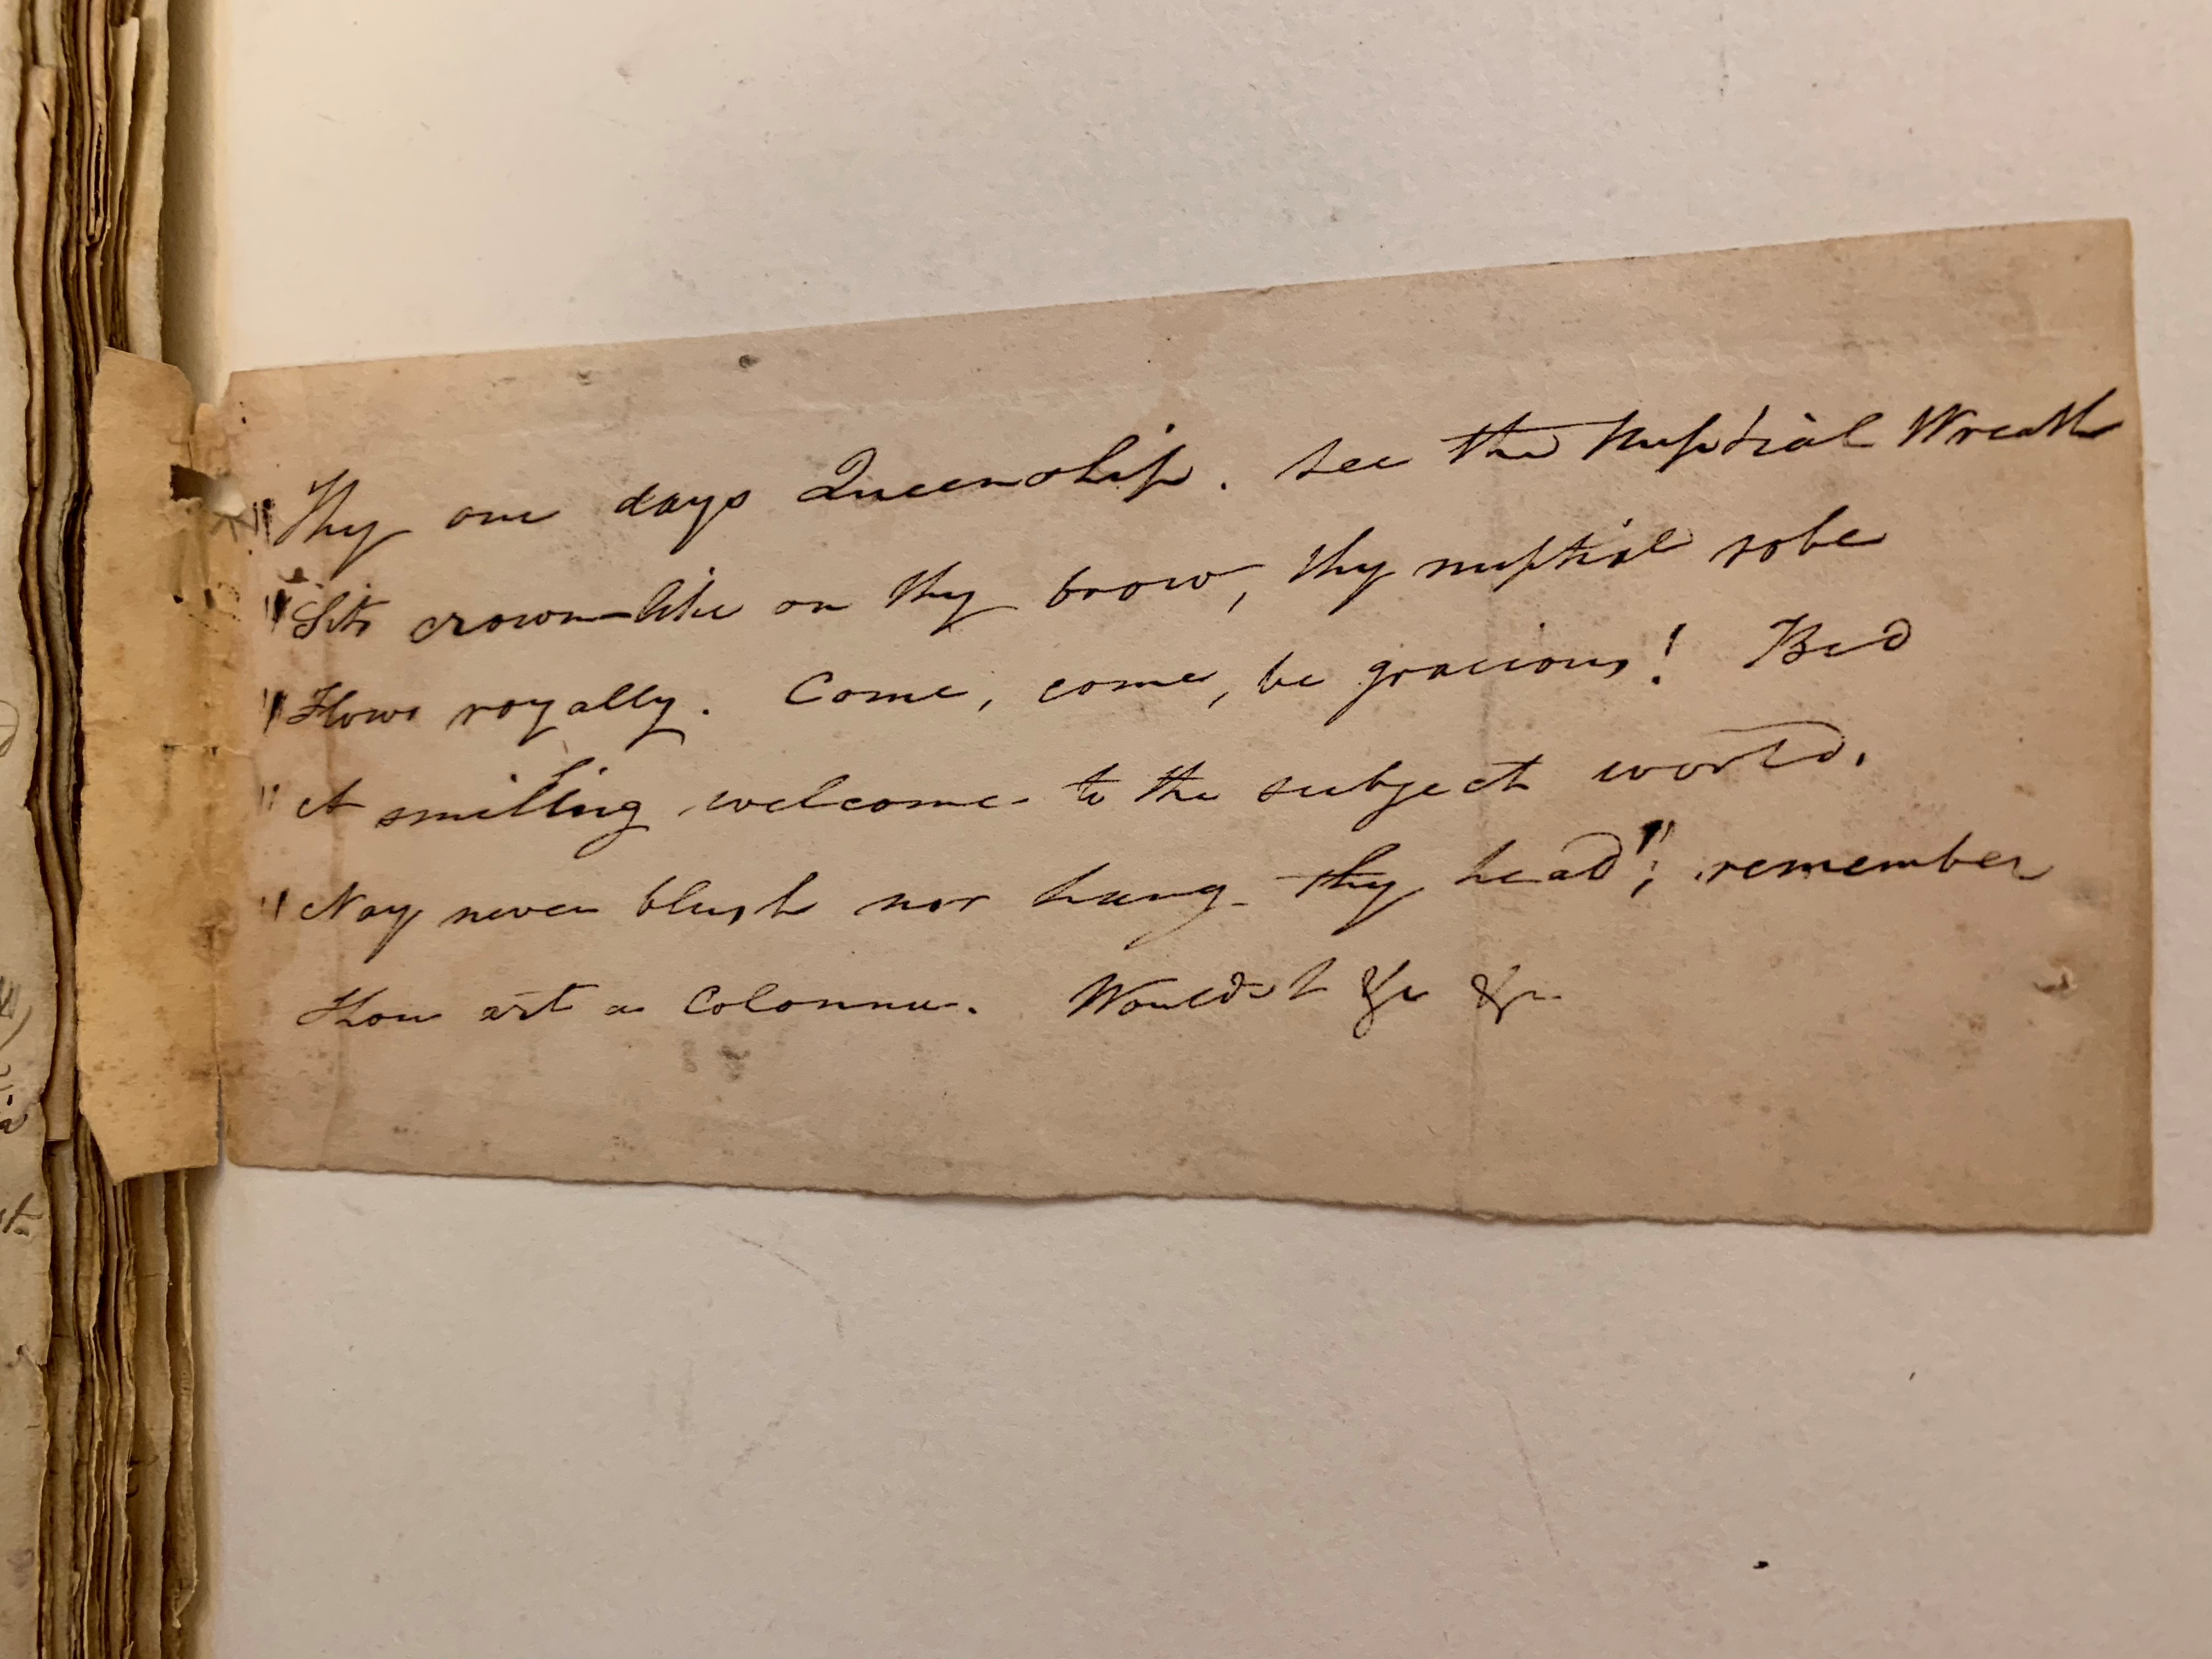 "Thy one days Queenship. See the Nuptial Wreath
"Sits crown-like on thy brow, thy nuptial robe
"Flows royally. Come, come, be gracious! Bid
"A smiling welcome to the subject world.
"Nay never blush nor hang thy head"; remember
Thou art a Colonna. Wouldst &c &c.